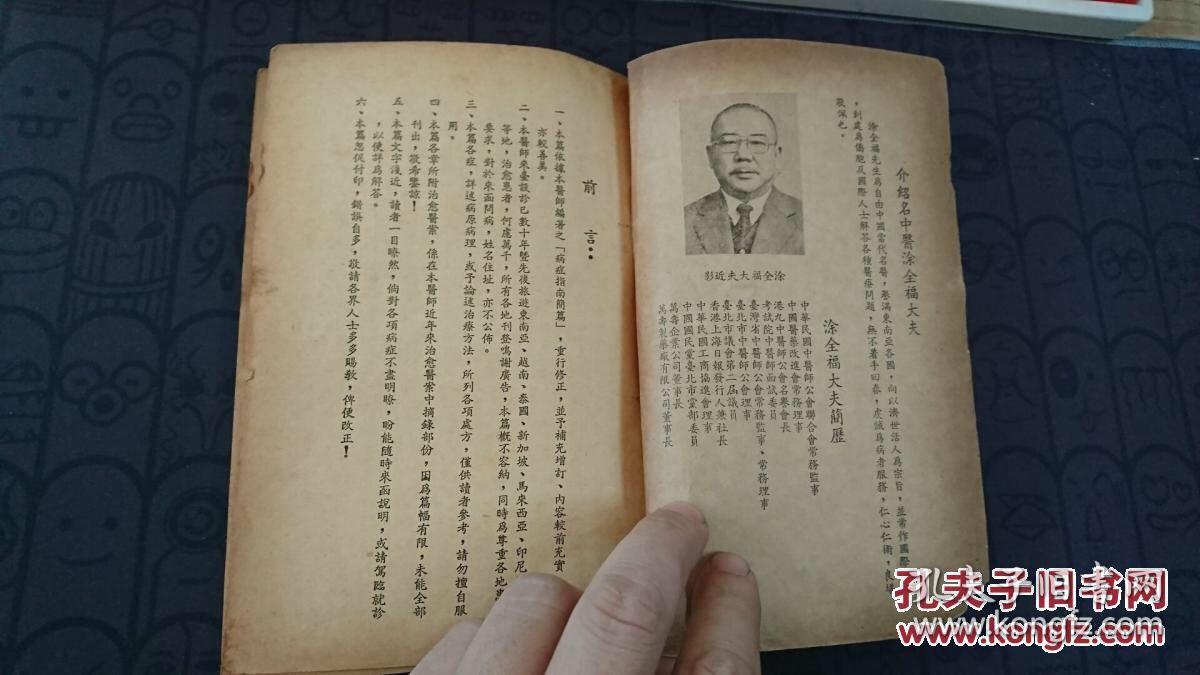 介紹名中醫涂全福大夫
涂全福先生爲自由中國當代名醫，譽滿東南亞各國，向以濟世活人爲宗旨，並常作國際
，到處爲僑胞及國際人士解答各種醫療問題，無不着手回春，虔誠爲病者服務，仁心仁術，良堪
敬佩也。
涂全福大夫近影
涂全福大夫簡歷
中華民國中醫師公會聯合會常務監事
中國醫藥改進會常務理事
港九中醫師公會名譽會長
考試院中醫師面試委員
臺灣省中醫師公會常務監事、常務理事
臺北市中醫師公會理事
臺北市議會第二屆議員
香港上海日報發行人兼社長
中華民國工商協進會理事
中國國民黨臺北市黨部委員
萬壽企業公司董事長
萬壽製藥廠有限公司董事長
前言：
一、本篇依據本醫師編著之「病症指南簡篇」，重行修正，並予補充增訂、內容較前充實
亦較善美。
二、本醫師來臺設診已數十年暨先後旅遊東南亞、越南、泰國、新加坡、馬來西亞、印尼
等地，治愈患者，何處萬千，所有各地刊登鳴謝廣告，本篇概不容納，同時爲尊重各地患
要求，對於來函問病，姓名住址，亦不公佈。
三、本篇各症，詳述病原病理，或予論述治療方法，所列各項處方，僅供讀者參考，請勿擅自服
用。
四、本篇各章所附治愈醫案，係在本醫師近年來治愈醫案中摘錄部份，因爲篇幅有限，未能全部
刊出，敬希鑒諒！
五、本篇文字淺近，讀者一目瞭然，倘對各項病症不盡明瞭，盼能隨時來函說明，或請駕臨就診
，以便詳爲解答。
六、本篇怱促付印，錯誤自多，敬請各界人士多多賜教，俾便改正！
孔夫子旧书网
www.kongfz.com